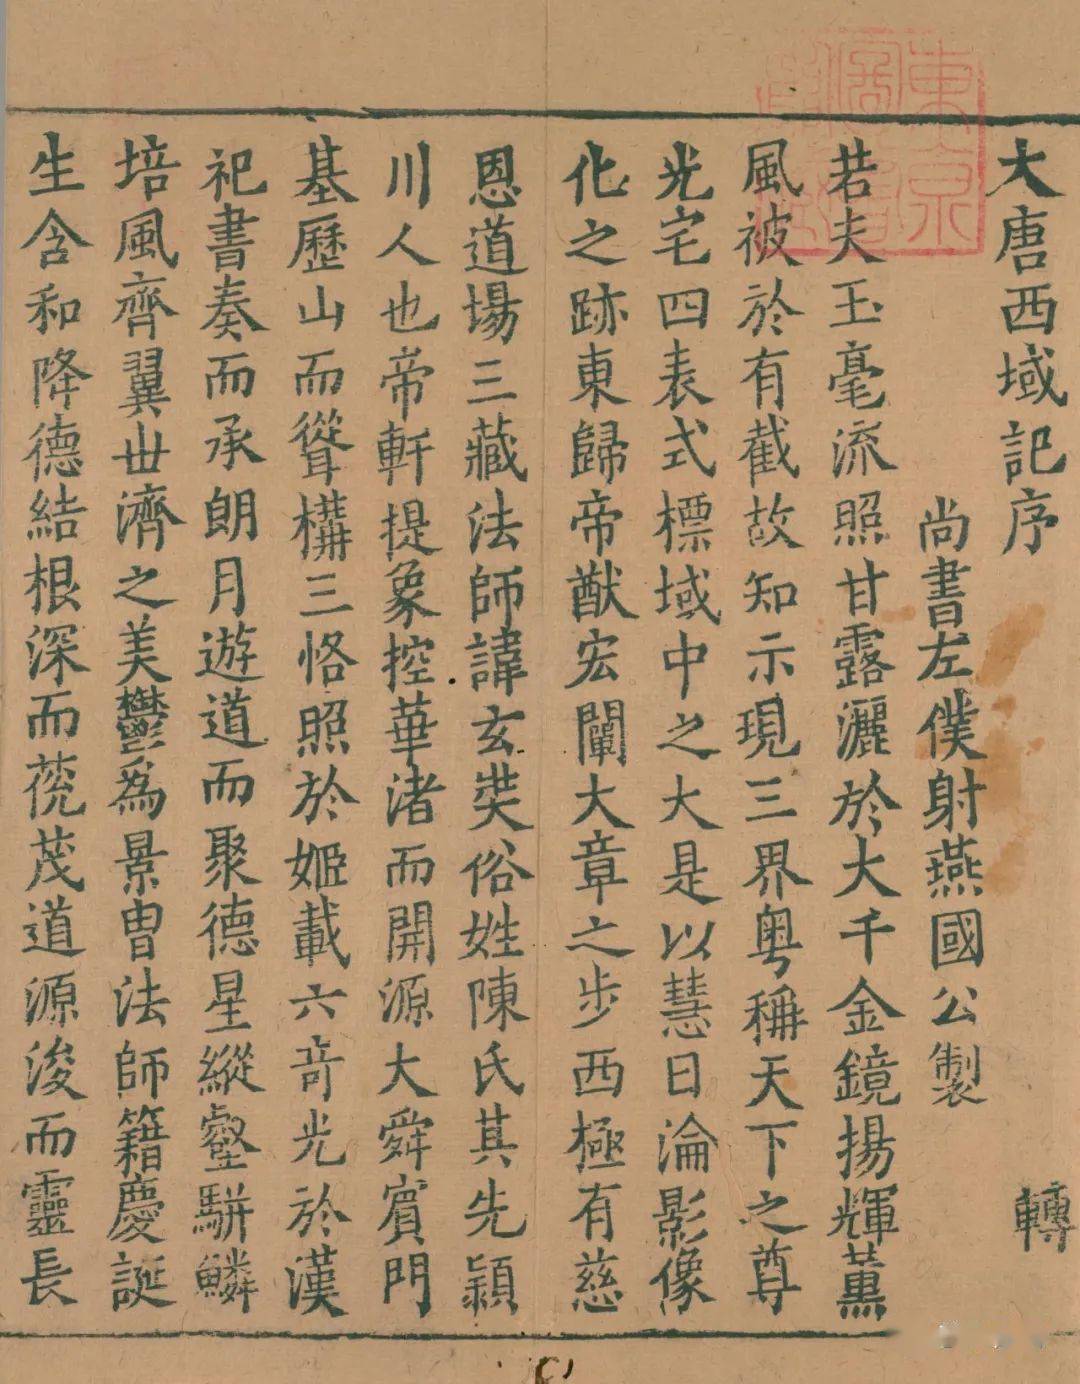 大唐西域記序
轉
尚書左僕射燕國公製
若夫玉毫流照甘露灑於大千金鏡揚輝薰
風被於有截故知示現三界粤稱天下之尊
光宅四表式標域中之大是以慧日淪影像
化之跡東歸帝猷宏闡大章之步西極有慈
恩道場三藏法師諱玄奘俗姓陳氏其先潁
川人也帝軒提象控華渚而開源大舜賓門
基歷山而聳構三恪照於姬載六奇光於漢
祀書奏而承朗月遊道而聚德星縱壑駢鱗
培風齊翼世濟之美鬱為景胄法師籍慶誕
生含和降德結根深而䓲茂道源浚而靈長
東京